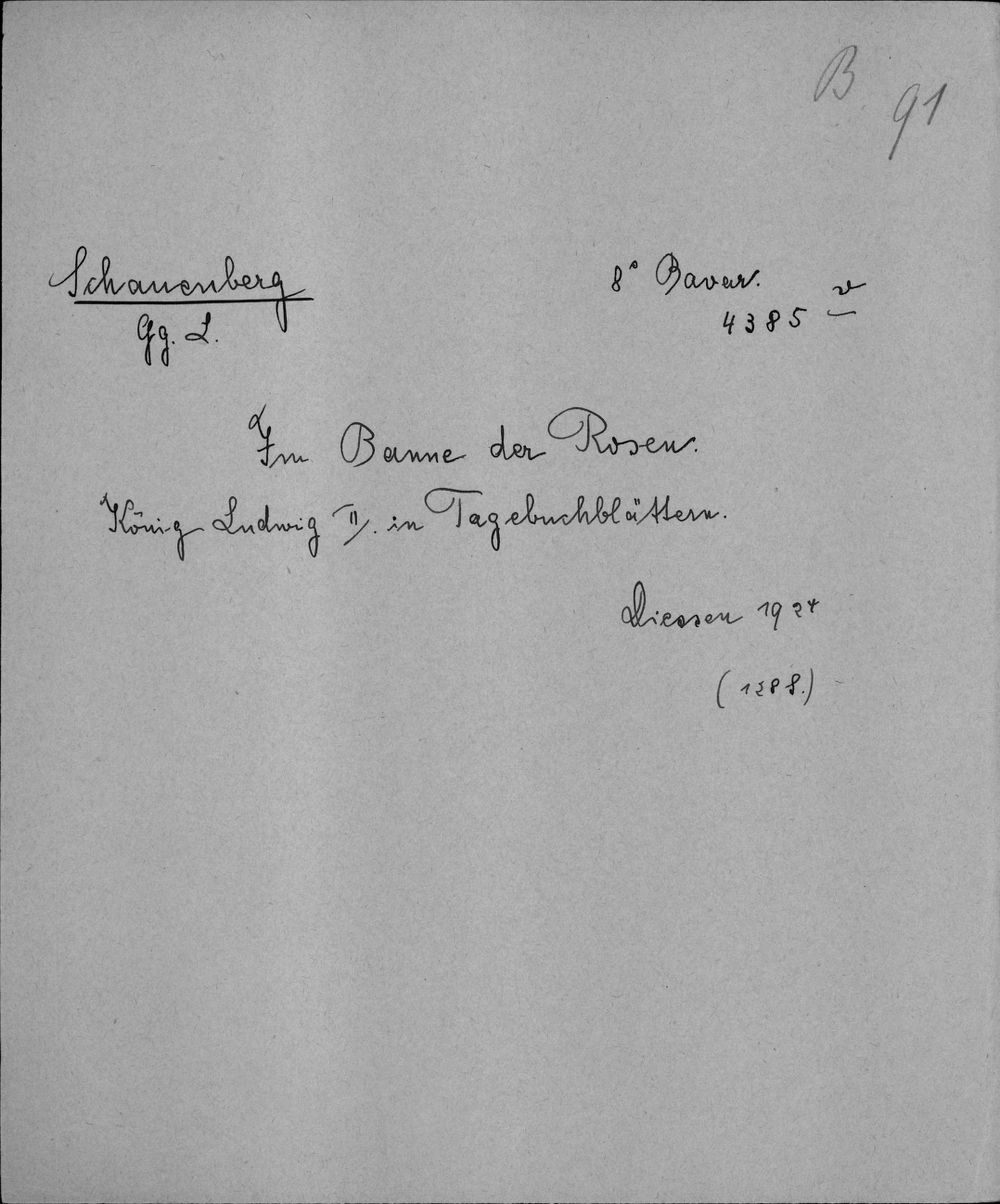 B 91
Schauenberg
Gg. L.
8° Bavar.
4385 v
Im Banne der Rosen.
König Ludwig II. in Tagebuchblättern.
Diessen 1924
(128 S.)